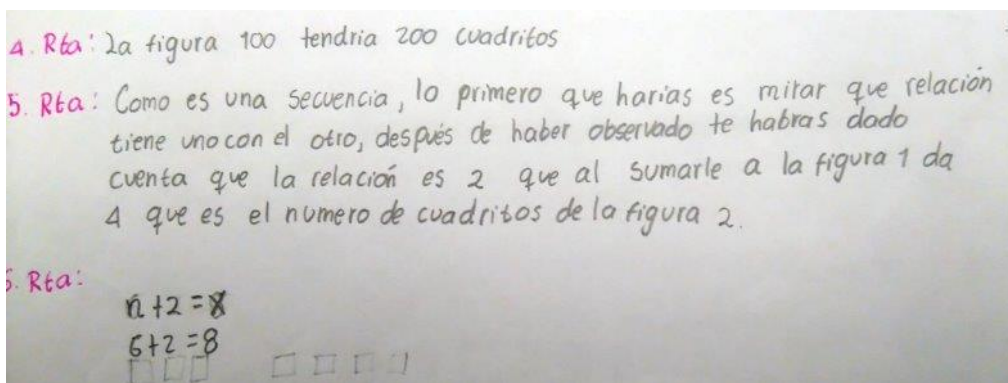 4. Rta: La figura 100 tendria 200 cuadritos
5. Rta: Como es una secuencia, lo primero que harias es mirar que relación
tiene uno con el otro, después de haber observado te habras dado
cuenta que la relación es 2 que al sumarle a la figura 1 da
4 que es el numero de cuadritos de la figura 2.
6. Rta:
n+2=X
6+2=8